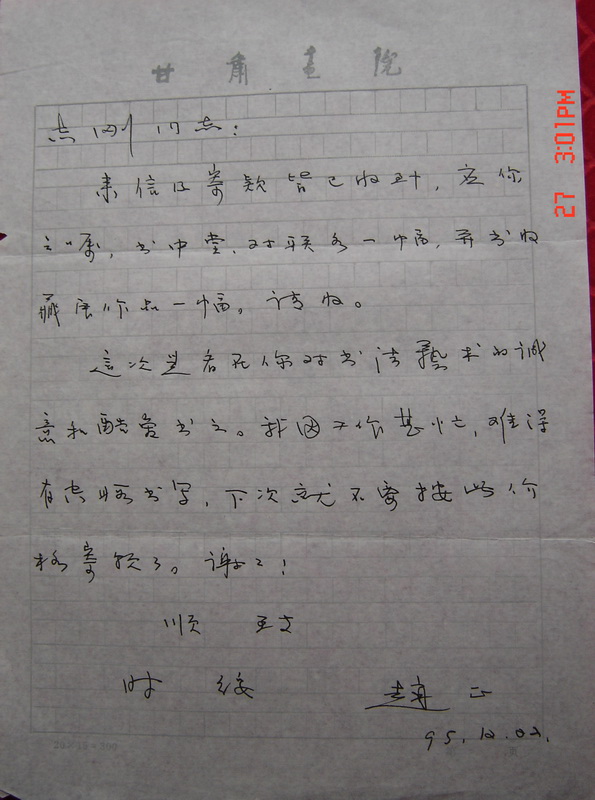 甘肃画院
志刚同志:
来信及寄款皆已收到,应你
之嘱,书中堂、对联各一幅,并书收
藏展作品一幅。请收。
这次是看在你对书法艺术的诚
意和酷爱书之。我因工作甚忙,难得
有空暇书写,下次就不要按此价
格寄款了。谢谢!
顺致
时绥
赵正
95.12.02.
20×15=300
27 3:01PM